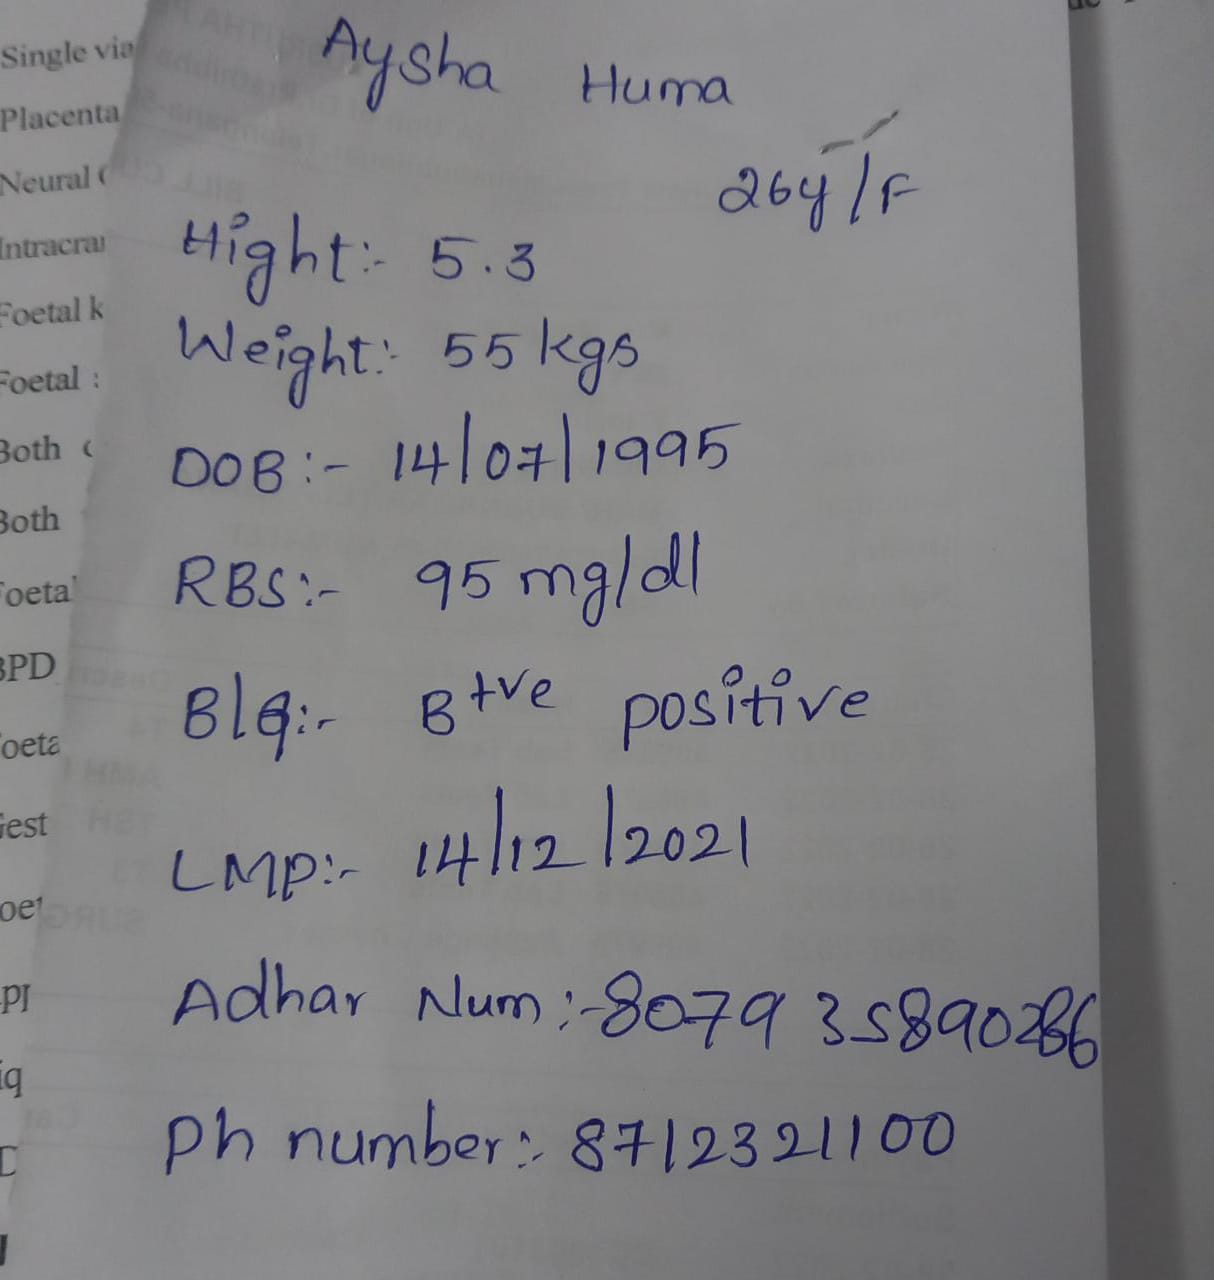 Aysha Huma
26y/F
Hight:- 5.3
Weight:- 55 kgs
DOB:- 14/07/1995
RBS:- 95 mg/dl
Blg:- B+ve positive
LMP:- 14/12/2021
Adhar Num:- 8079 35890286
Ph number:- 8712321100
Single
Placenta
Neural
Foetal
Foetal :
Both
Both
BPD